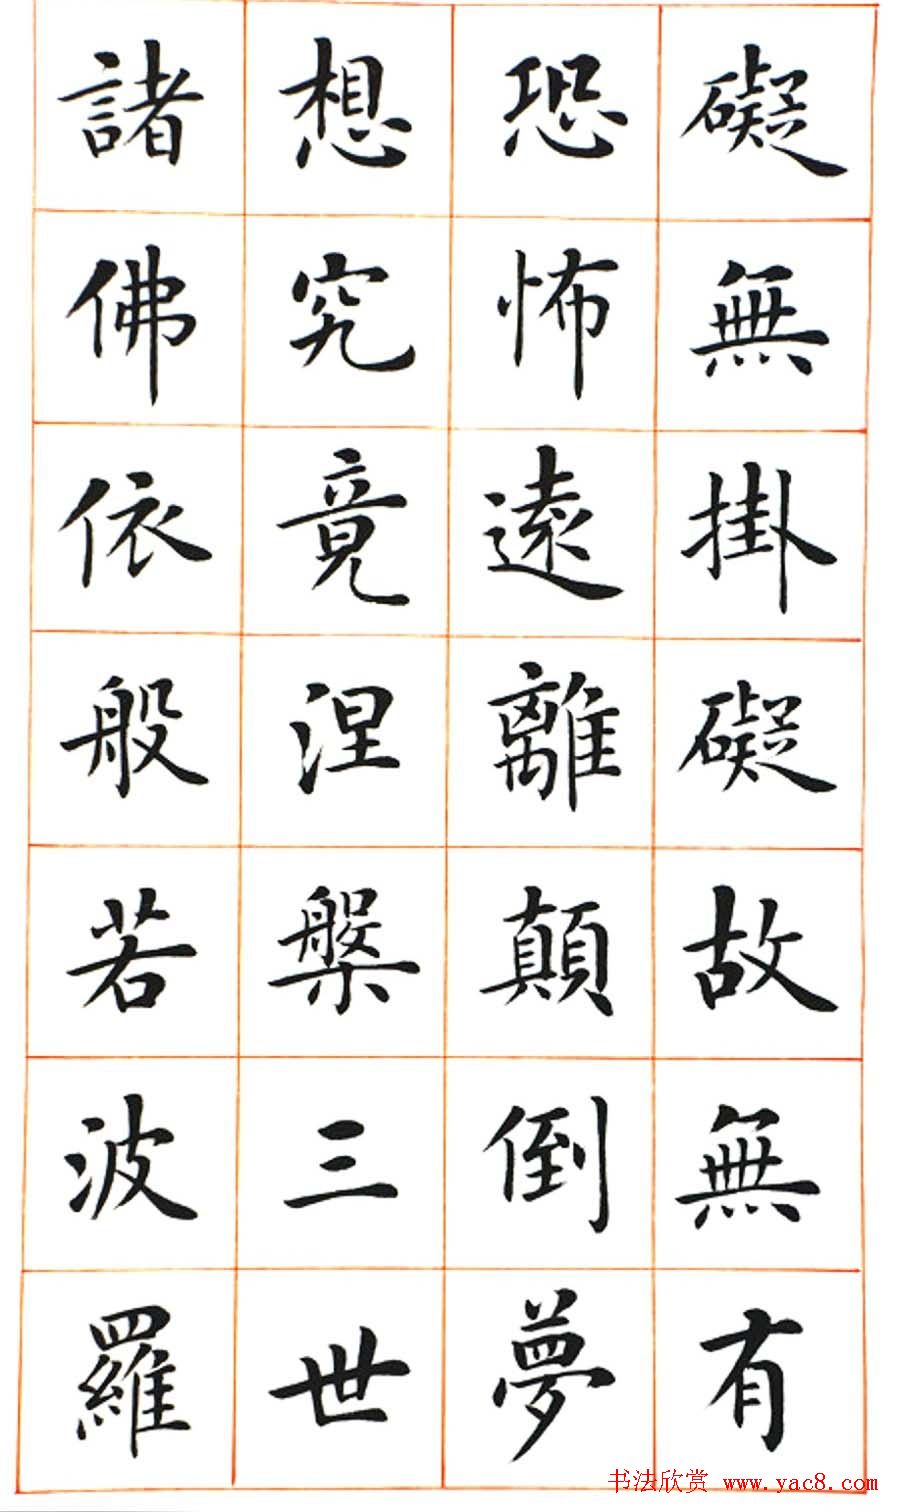 礙無掛礙故無有
恐怖遠離顛倒夢
想究竟涅槃三世
諸佛依般若波羅
书法欣赏 www.yac8.com